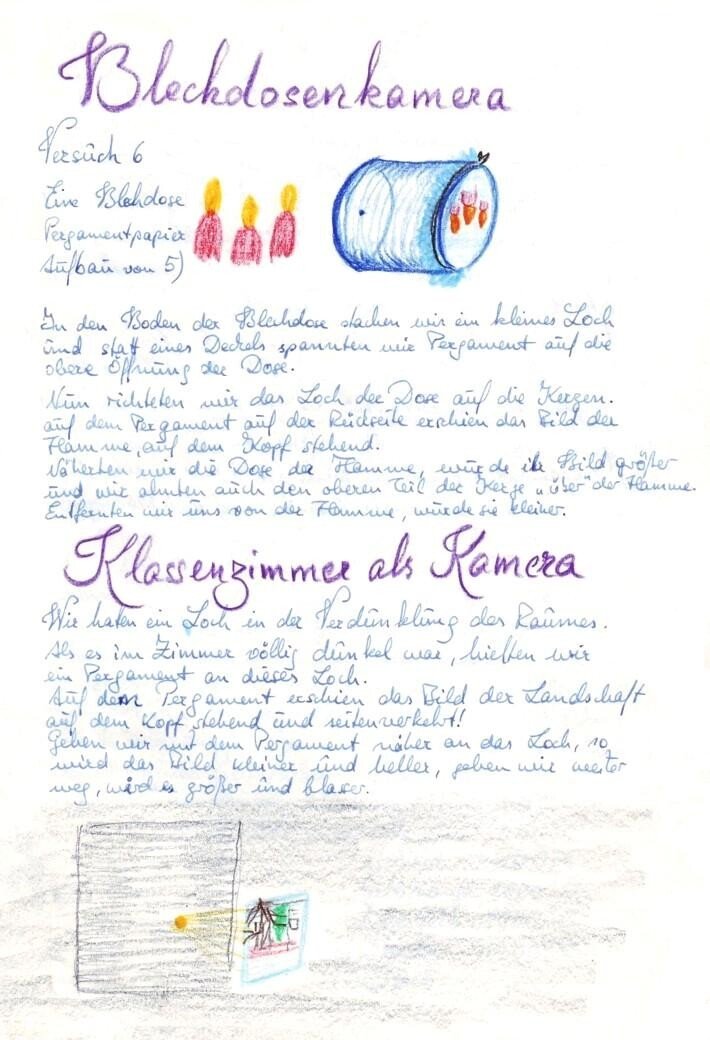 Blechdosenkamera
Versuch 6
Eine Blechdose
Pergamentpapier
Aufbau von 5)
In den Boden der Blechdose stachen wir ein kleines Loch
und statt eines Deckels spannten wir Pergament auf die
obere Öffnung der Dose.
Nun richteten wir das Loch der Dose auf die Kerzen.
auf dem Pergament auf der Rückseite erschien das Bild der
Flamme, auf dem Kopf stehend.
Näherten wir die Dose der Flamme, wurde ihr Bild größer
und wir ahnten auch den oberen Teil der Kerze "über" der Flamme.
Entfernten wir uns von der Flamme, wurde sie kleiner.
Klassenzimmer als Kamera
Wir haben ein Loch in der Verdunklung des Raumes.
Als es im Zimmer völlig dunkel war, hielten wir
ein Pergament an dieses Loch.
Auf dem Pergament erschien das Bild der Landschaft
auf dem Kopf stehend und seitenverkehrt!
Gehen wir mit dem Pergament näher an das Loch, so
wird das Bild kleiner und heller, gehen wir weiter
weg, wird es größer und blasser.